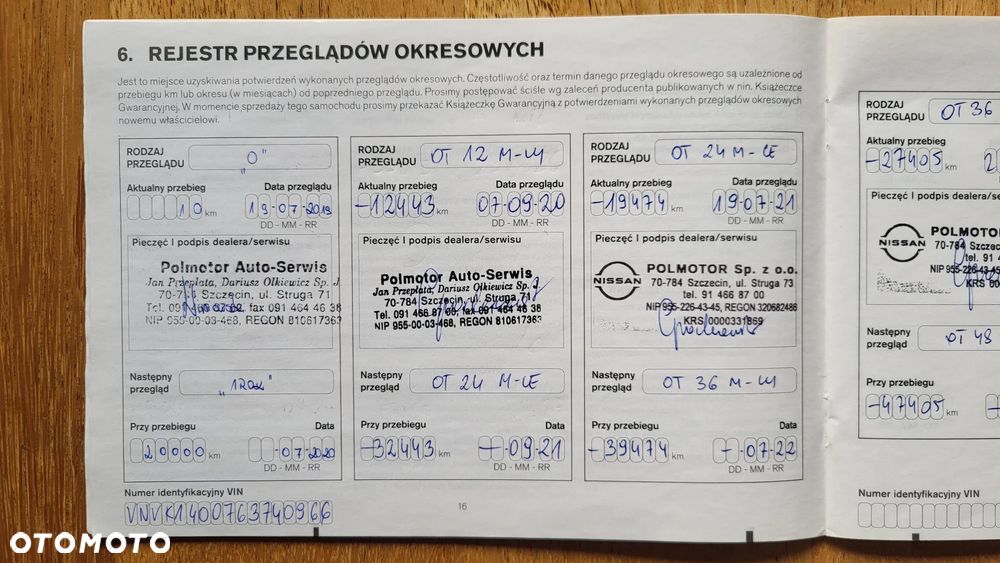 6. REJESTR PRZEGLĄDÓW OKRESOWYCH
Jest to miejsce uzyskiwania potwierdzeń wykonanych przeglądów okresowych. Częstotliwość oraz termin danego przeglądu okresowego są uzależnione od
przebiegu km lub okresu (w miesiącach) od poprzedniego przeglądu. Prosimy postępować ściśle wg zaleceń producenta publikowanych w nin. Książeczce
Gwarancyjnej. W momencie sprzedaży tego samochodu prosimy przekazać Książeczkę Gwarancyjną z potwierdzeniami wykonanych przeglądów okresowych
nowemu właścicielowi.
RODZAJ
PRZEGLĄDU "0"
Aktualny przebieg Data przeglądu
10 km 19-07-2019
DD - MM - RR
Pieczęć I podpis dealera/serwisu
Polmotor Auto-Serwis
Jan Przepłata, Dariusz Olkiewicz Sp. J.
70-784 Szczecin, ul. Struga 71
fax 091 464 46 38
NIP 955-00-03-468, REGON 810617363
Następny
przegląd
Przy przebiegu Data
20000 km -07-2020
DD - MM - RR
RODZAJ
PRZEGLĄDU OT 12 M-CY
Aktualny przebieg Data przeglądu
-12443 km 07-09-20
DD - MM - RR
Pieczęć I podpis dealera/serwisu
Polmotor Auto-Serwis
Jan Przepłata, Dariusz Olkiewicz Sp. J.
70-784 Szczecin, ul. Struga 71
Tel. 091 466 87 00, fax 091 464 46 38
NIP 955-00-03-468, REGON 810617363
Następny
przegląd OT 24 M-CE
Przy przebiegu Data
-32443 km -09-21
DD - MM - RR
RODZAJ
PRZEGLĄDU OT 24 M-CE
Aktualny przebieg Data przeglądu
-19474 km 19-07-21
DD - MM - RR
Pieczęć I podpis dealera/serwisu
NISSAN
POLMOTOR Sp. z o.o.
70-784 Szczecin, ul. Struga 73
tel. 91 466 87 00
NIP 955-226-43-45, REGON 320682486
KRS 0000331869
Następny
przegląd OT 36 M-CY
Przy przebiegu Data
-39474 km -07-22
DD - MM - RR
RODZAJ
PRZEGLĄDU OT 36
Aktualny przebieg
-27405 km
Pieczęć I podpis dealera/serwisu
NISSAN
POLMOTO
tel. 91
NIP 955-226-43-45
Następny
przegląd OT 48
Przy przebiegu
-47405 km
Numer identyfikacyjny VIN
VNVK1400763740966
16
Numer identyfikacyjny VIN
OTOMOTO